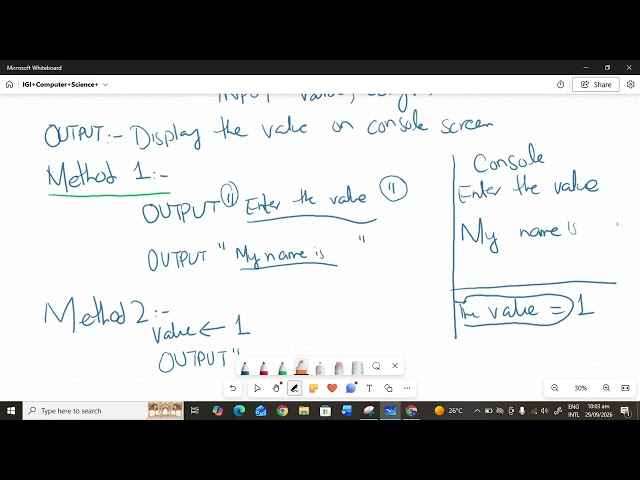 Microsoft Whiteboard
IGI+Computer+Science+
Share
INPUT value,
OUTPUT:- Display the value on console screen
Method 1:-
OUTPUT " Enter the value "
OUTPUT " My name is "
Method 2:-
value ← 1
OUTPUT "
Console
Enter the value
My name is
The value = 1
30%
Type here to search
26°C
ENG
INTL
10:03 am
29/09/2026